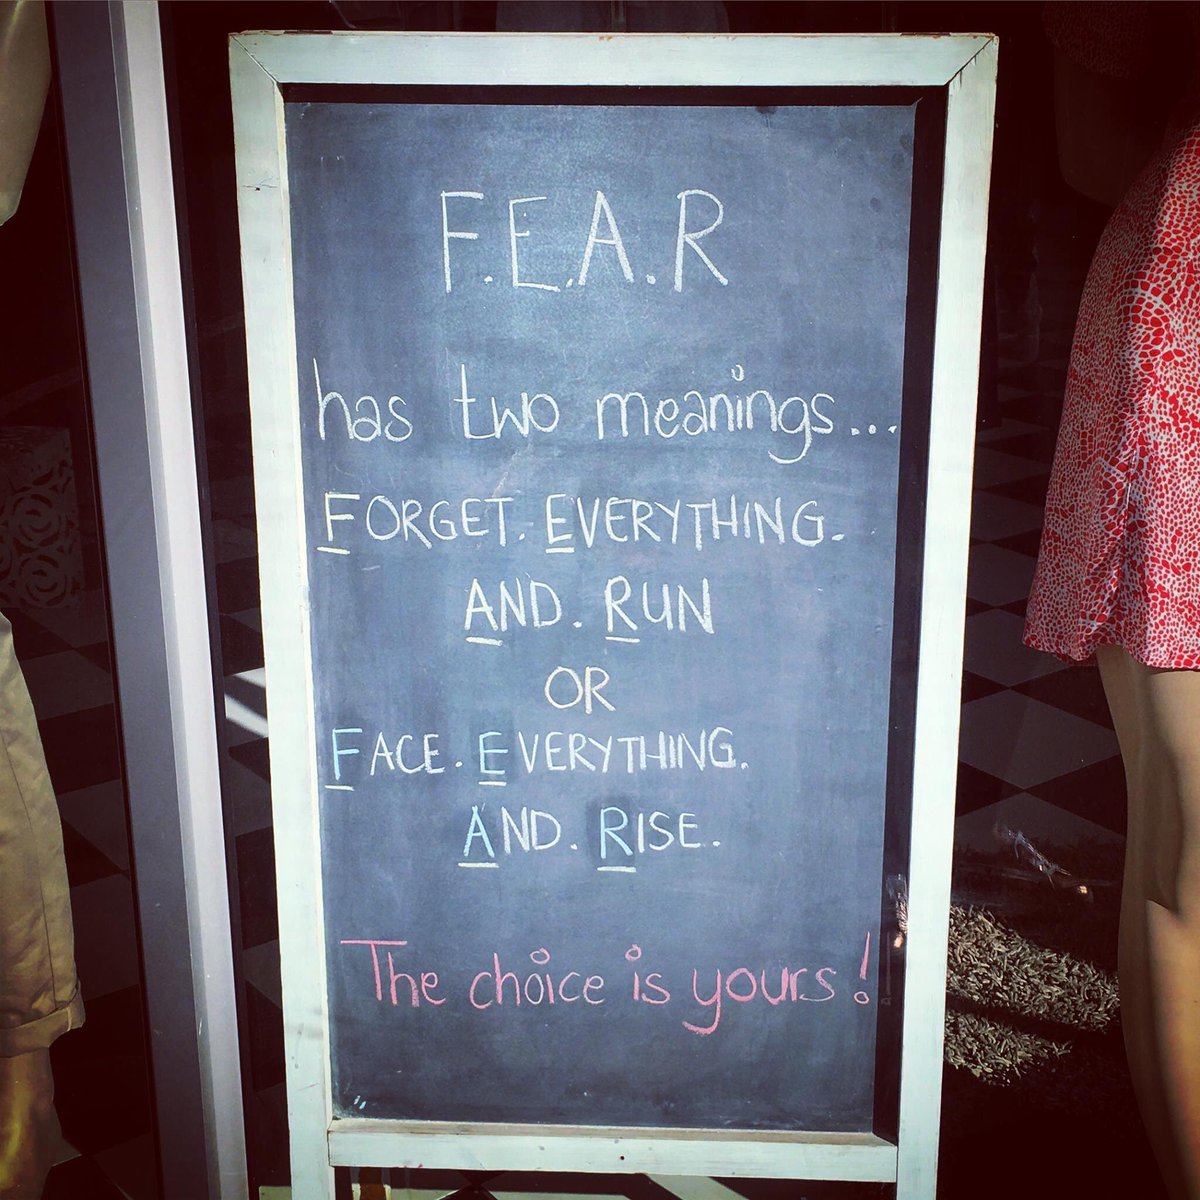 F.E.A.R
has two meanings...
FORGET. EVERYTHING.
AND. RUN
OR
FACE. EVERYTHING.
AND. RISE.
The choice is yours!